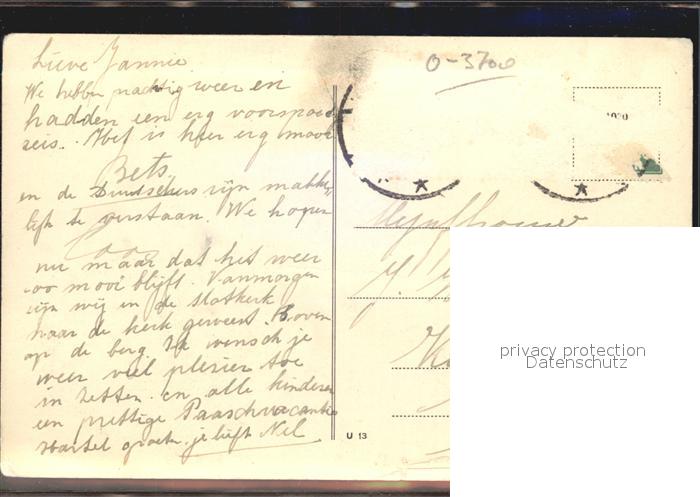 Lieve Jannie
We hebben prachtig weer en
hadden een erg voorspoe
reis. Het is hier erg mooi
Bets
en de Duitschers zijn makke
lijk te verstaan. We hopen
nu maar dat het weer
zoo mooi blijft. Vanmorgen
zijn wij in de slotkerk
naar de kerk geweest. Boven
op de berg. Ik wensch je
weer veel plezier toe
in Zetten en alle kinderen
een prettige Paaschvacantie
Hartel groeten je liefh Nel
U 13
0-3700
privacy protection
Datenschutz